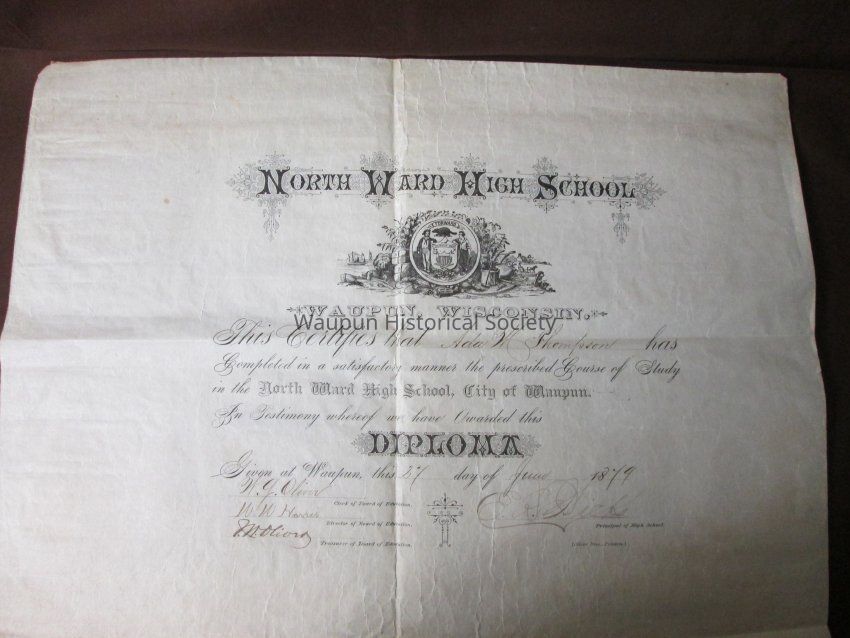 NORTH WARD HIGH SCHOOL
FORWARD
WAUPUN, WISCONSIN,
Waupun Historical Society
This Certifies that Ada M Thompson has
Completed in a satisfactory manner the prescribed Course of Study
in the North Ward High School, City of Waupun.
In Testimony whereof we have Awarded this
DIPLOMA
Given at Waupun, this 27 day of June 1879
W. G. Oliver
Clerk of Board of Education.
Director of Board of Education.
Principal of High School.
Treasurer of Board of Education.